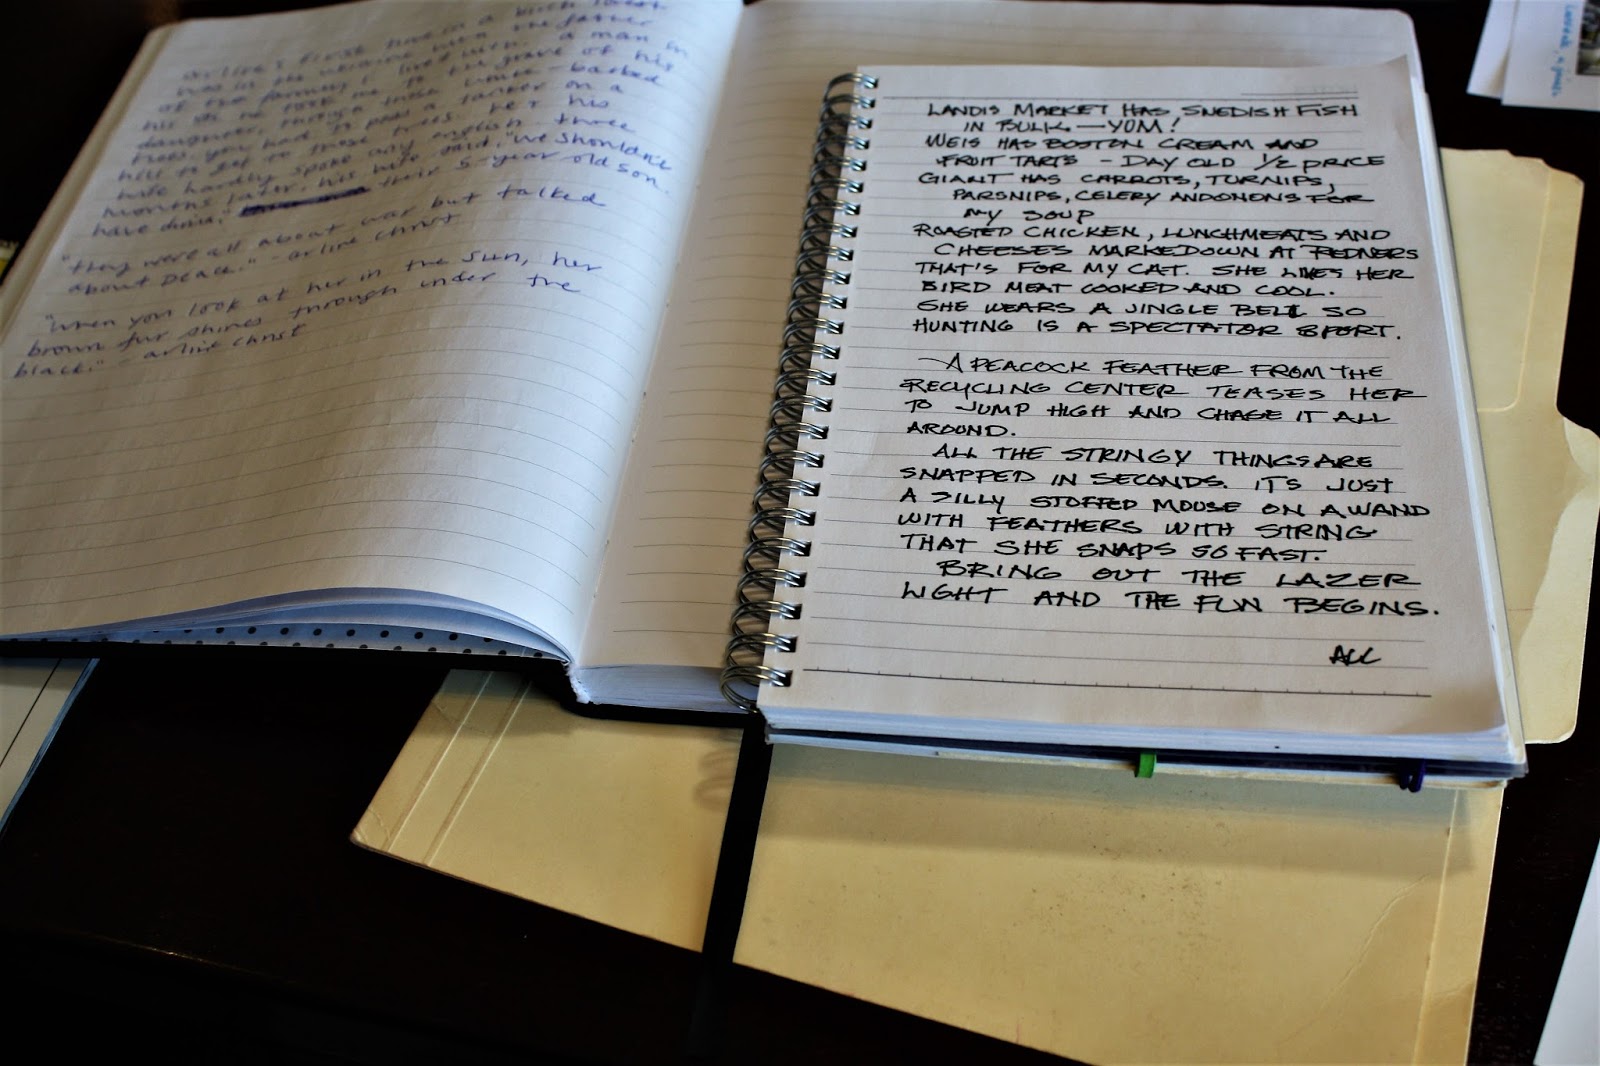 of the farmers I lived with. A man in
his took me to the grave of his
daughter, through these white-barked
trees. you had to pass a tanker on a
hill to get to those trees. her his
wife hardly spoke any english three
months later, his wife said, "We shouldn't
have divia." their 5-year old son.
"they were all about war but talked
about peace." - arline christ
"when you look at her in the sun, her
brown fur shines through under the
black." - arline christ
LANDIS MARKET HAS SWEDISH FISH
IN BULK — YOM!
WEIS HAS BOSTON CREAM AND
FRUIT TARTS - DAY OLD 1/2 PRICE
GIANT HAS CARROTS, TURNIPS,
PARSNIPS, CELERY AND ONIONS FOR
MY SOUP
ROASTED CHICKEN, LUNCHMEATS AND
CHEESES MARKEDOWN AT REDNERS
THAT'S FOR MY CAT. SHE LIKES HER
BIRD MEAT COOKED AND COOL.
SHE WEARS A JINGLE BELL SO
HUNTING IS A SPECTATOR SPORT.
A PEACOCK FEATHER FROM THE
RECYCLING CENTER TEASES HER
TO JUMP HIGH AND CHASE IT ALL
AROUND.
ALL THE STRINGY THINGS ARE
SNAPPED IN SECONDS. IT'S JUST
A SILLY STOFFED MOUSE ON A WAND
WITH FEATHERS WITH STRING
THAT SHE SNAPS SO FAST.
BRING OUT THE LAZER
LIGHT AND THE FUN BEGINS.
ALC